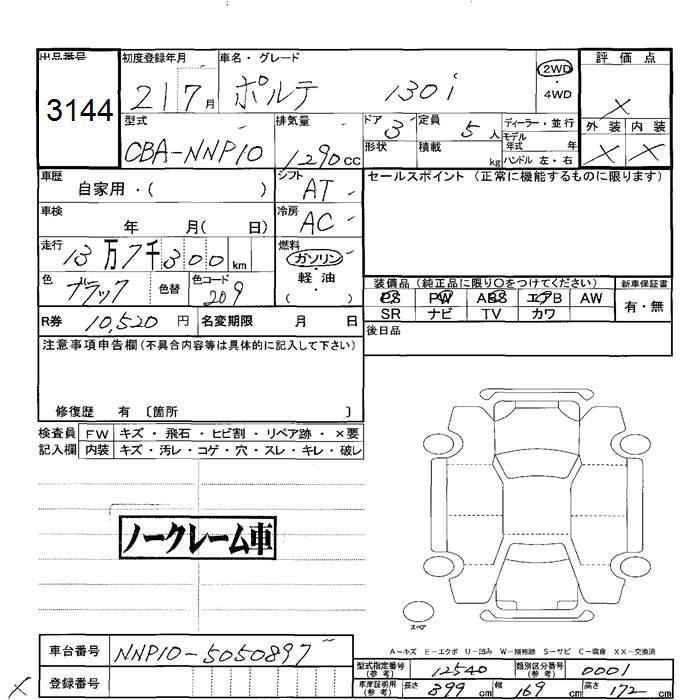 出品番号 初度登録年月 車名・グレード 評価点
3144 21 7月 ポルテ 130i 2WD・4WD X
型式 排気量 ドア 3 定員 5人 ディーラー・並行 外装 内装
CBA-NNP10 1290cc 形状 積載 kg モデル年式 年 X X
ハンドル 左・右
車歴 自家用・( ) シフト AT セールスポイント (正常に機能するものに限ります)
車検 年 月( 日) 冷房 AC
走行 13万7千300km 燃料 ガソリン・軽油・( )
色 ブラック 色替 色コード 209 装備品 (純正品に限り○をつけてください) 新車保証書
PS PW ABS エアB AW 有・無
SR ナビ TV カワ
R券 10,520円 名変期限 月 日 後日品
注意事項申告欄 (不具合内容等は具体的に記入して下さい)
修復歴 有 〔箇所 〕
検査員 FW キズ・飛石・ヒビ割・リペア跡・×要
記入欄 内装 キズ・汚レ・コゲ・穴・スレ・キレ・破レ
ノークレーム車
スペア
A-キズ E-エクボ U-凹み W-補修跡 S-サビ C-腐食 XX-交換済
車台番号 NNP10-5050897 型式指定番号(参考) 12540 類別区分番号(参考) 0001
X 登録番号 車庫証明用(参考) 長さ 399cm 幅 169cm 高さ 172cm